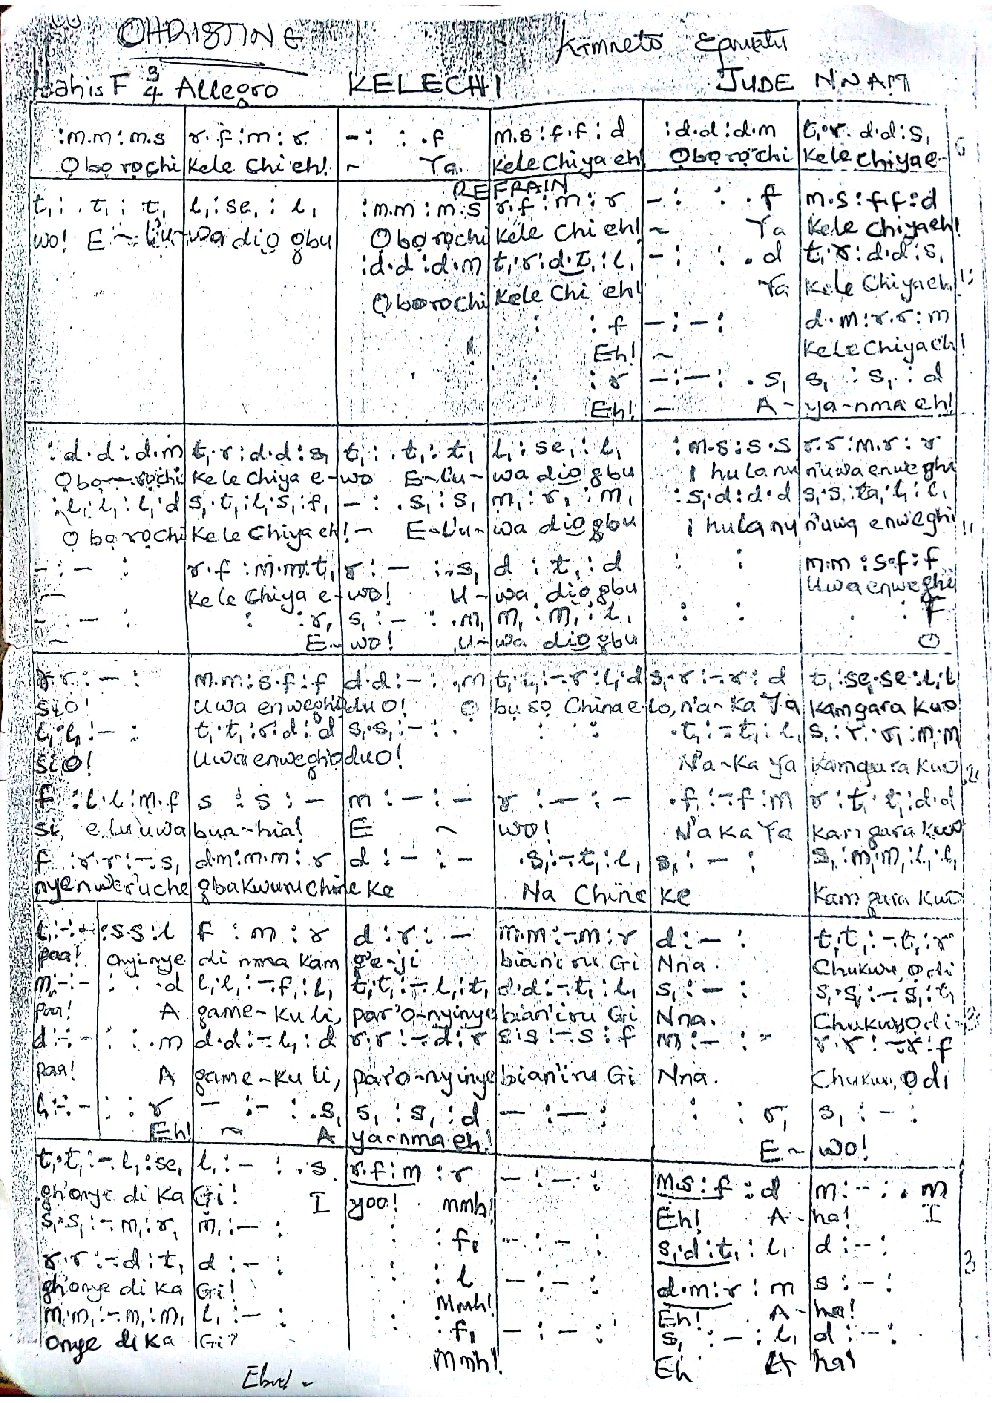 CHRISTINE
Lahis F 3/4 Allegro KELECHI JUDE NNAM
:m.m:m.s r.f:m:r -: : .f m.s:f.f:d :d.d:d.m t,.r:d.d:s,
Ọbọrọchi Kele Chi eh! ~ Ya Kele Chiya eh! Ọbọrọchi Kele Chiya e-
REFRAIN
t,: .t,:t, l,:se,:l, :m.m:m.s r.f:m:r -: : .f m.s:f.f:d
wo! E~lu-wa diọ gbu Ọbọrọchi Kele Chi eh! ~ Ya Kele Chiyaeh!
:d.d:d.m t,.r:d.t,:l, -: : .d t,.r:d.d:s,
Ọbọrọchi Kele Chi eh! Ya Kele Chiyaeh!
: :f -:-: d.m:r.r:m
Eh! ~ Kele Chiyaeh!
: :r -:-: .s, s,:s,:d
Eh! - A- ya-nma eh!
:d.d:d.m t,.r:d.d:s, t,: .t,:t, l,:se,:l, :m.s:s.s r.r:m.r:r
Ọbọrọchi Kele Chiya e-wo E-lu-wa diọ gbu I hulanu n'uwa enweghi
:l,.l,:l,.d s,.t,:l,.s,:f, -: .s,:s, m,:r,:m, :s,.d:d.d s,.s,:ta,.l,:l,
Ọbọrọchi Kele Chiya eh! - E-lu-wa diọ gbu I hulanu n'uwa enweghi
-:-: r.f:m.m:t, r:-: .s, d:t,:d : : m.m:s.f:f
~ Kele Chiya e-wo! U-wa diọ gbu Uwa enweghi
-:-: : :r, s,:-: .m, m,:m,:l, : : : :f
~ E~wo! U-wa diọ gbu O
r.r:-: m.m:s.f:f d.d:-: .m t,.l,:-.r:l,.d s,.r:-.r:d t,.se,:se,.l,:l,
siO! Uwa enweghi duO! O bu so Chinae lo, n'a-Ka Ya Kamgara Kuo
l,.l,:-: t,.t,:r.d:d s,.s,:-: : : .t,:-.t,:l, s,.r:r.m:m
siO! Uwa enweghi duO! N'a-Ka Ya Kamgara Kuo
f:l.l:m.f s:s:- m:-:- r:-:- .f:-.f:m r.t,:l,.d:d
si, elu uwa bua-hia! E ~ wo! N'a Ka Ya Kamgara Kuo
f:r.r:-.s, d.m:m.m:r d:-:- .s,:-.t,:l, s,:-: s,.m,:m,.l,:l,
nyenweruche gbakwuru Chine Ke Na Chine Ke Kamgara Kuo
l,:-:- :s.s:l f:m:r d:r:- m.m:-.m:r d:-: t,.t,:-.t,:r
paa! Onyinye di mma Kam ge-ji bian'iru Gi Nna. Chukwu, Ọdi
m,:-:- : :d l,.l,:-.f,:l, t,.t,:-.l,:t, d.d:-.t,:l, s,:-: s,.s,:-.s,:t,
paa! A game-ku li, par'o-nyinye bian'iru Gi Nna. Chukwu, Ọdi
d:-:- : :m d.d:-.l,:d r.r:-.d:r s.s:-.s:f m:-: r.r:-.r:f
paa! A game-ku li, par'o-nyinye bian'iru Gi Nna. Chukwu, Ọdi
l,:-:- : :r -:-: .s, s,:s,:d -:-: : :r, s,:-:
Eh! ~ A ya-nma eh! E~ wo!
t,.t,:-.l,:se, l,:-: .s r.f:m:r -:-: m.s:f:d m:-: .m
gh'onye di Ka Gi! I yoo! mmh! Eh! A- ha! I
s,.s,:-.m,:r, m,:-: :f, -:-: s,.d:t,:l, d:-:
r.r:-.d:t, d:-: :l -:-: d.m:r:m s:-:
gh'onye di Ka Gi! Mmh! Eh! A- ha!
m,.m,:-.m,:m, l,:-: :f, -:-: s,:-:l, d:-:
onye di Ka Gi? Mmh! Eh A ha!